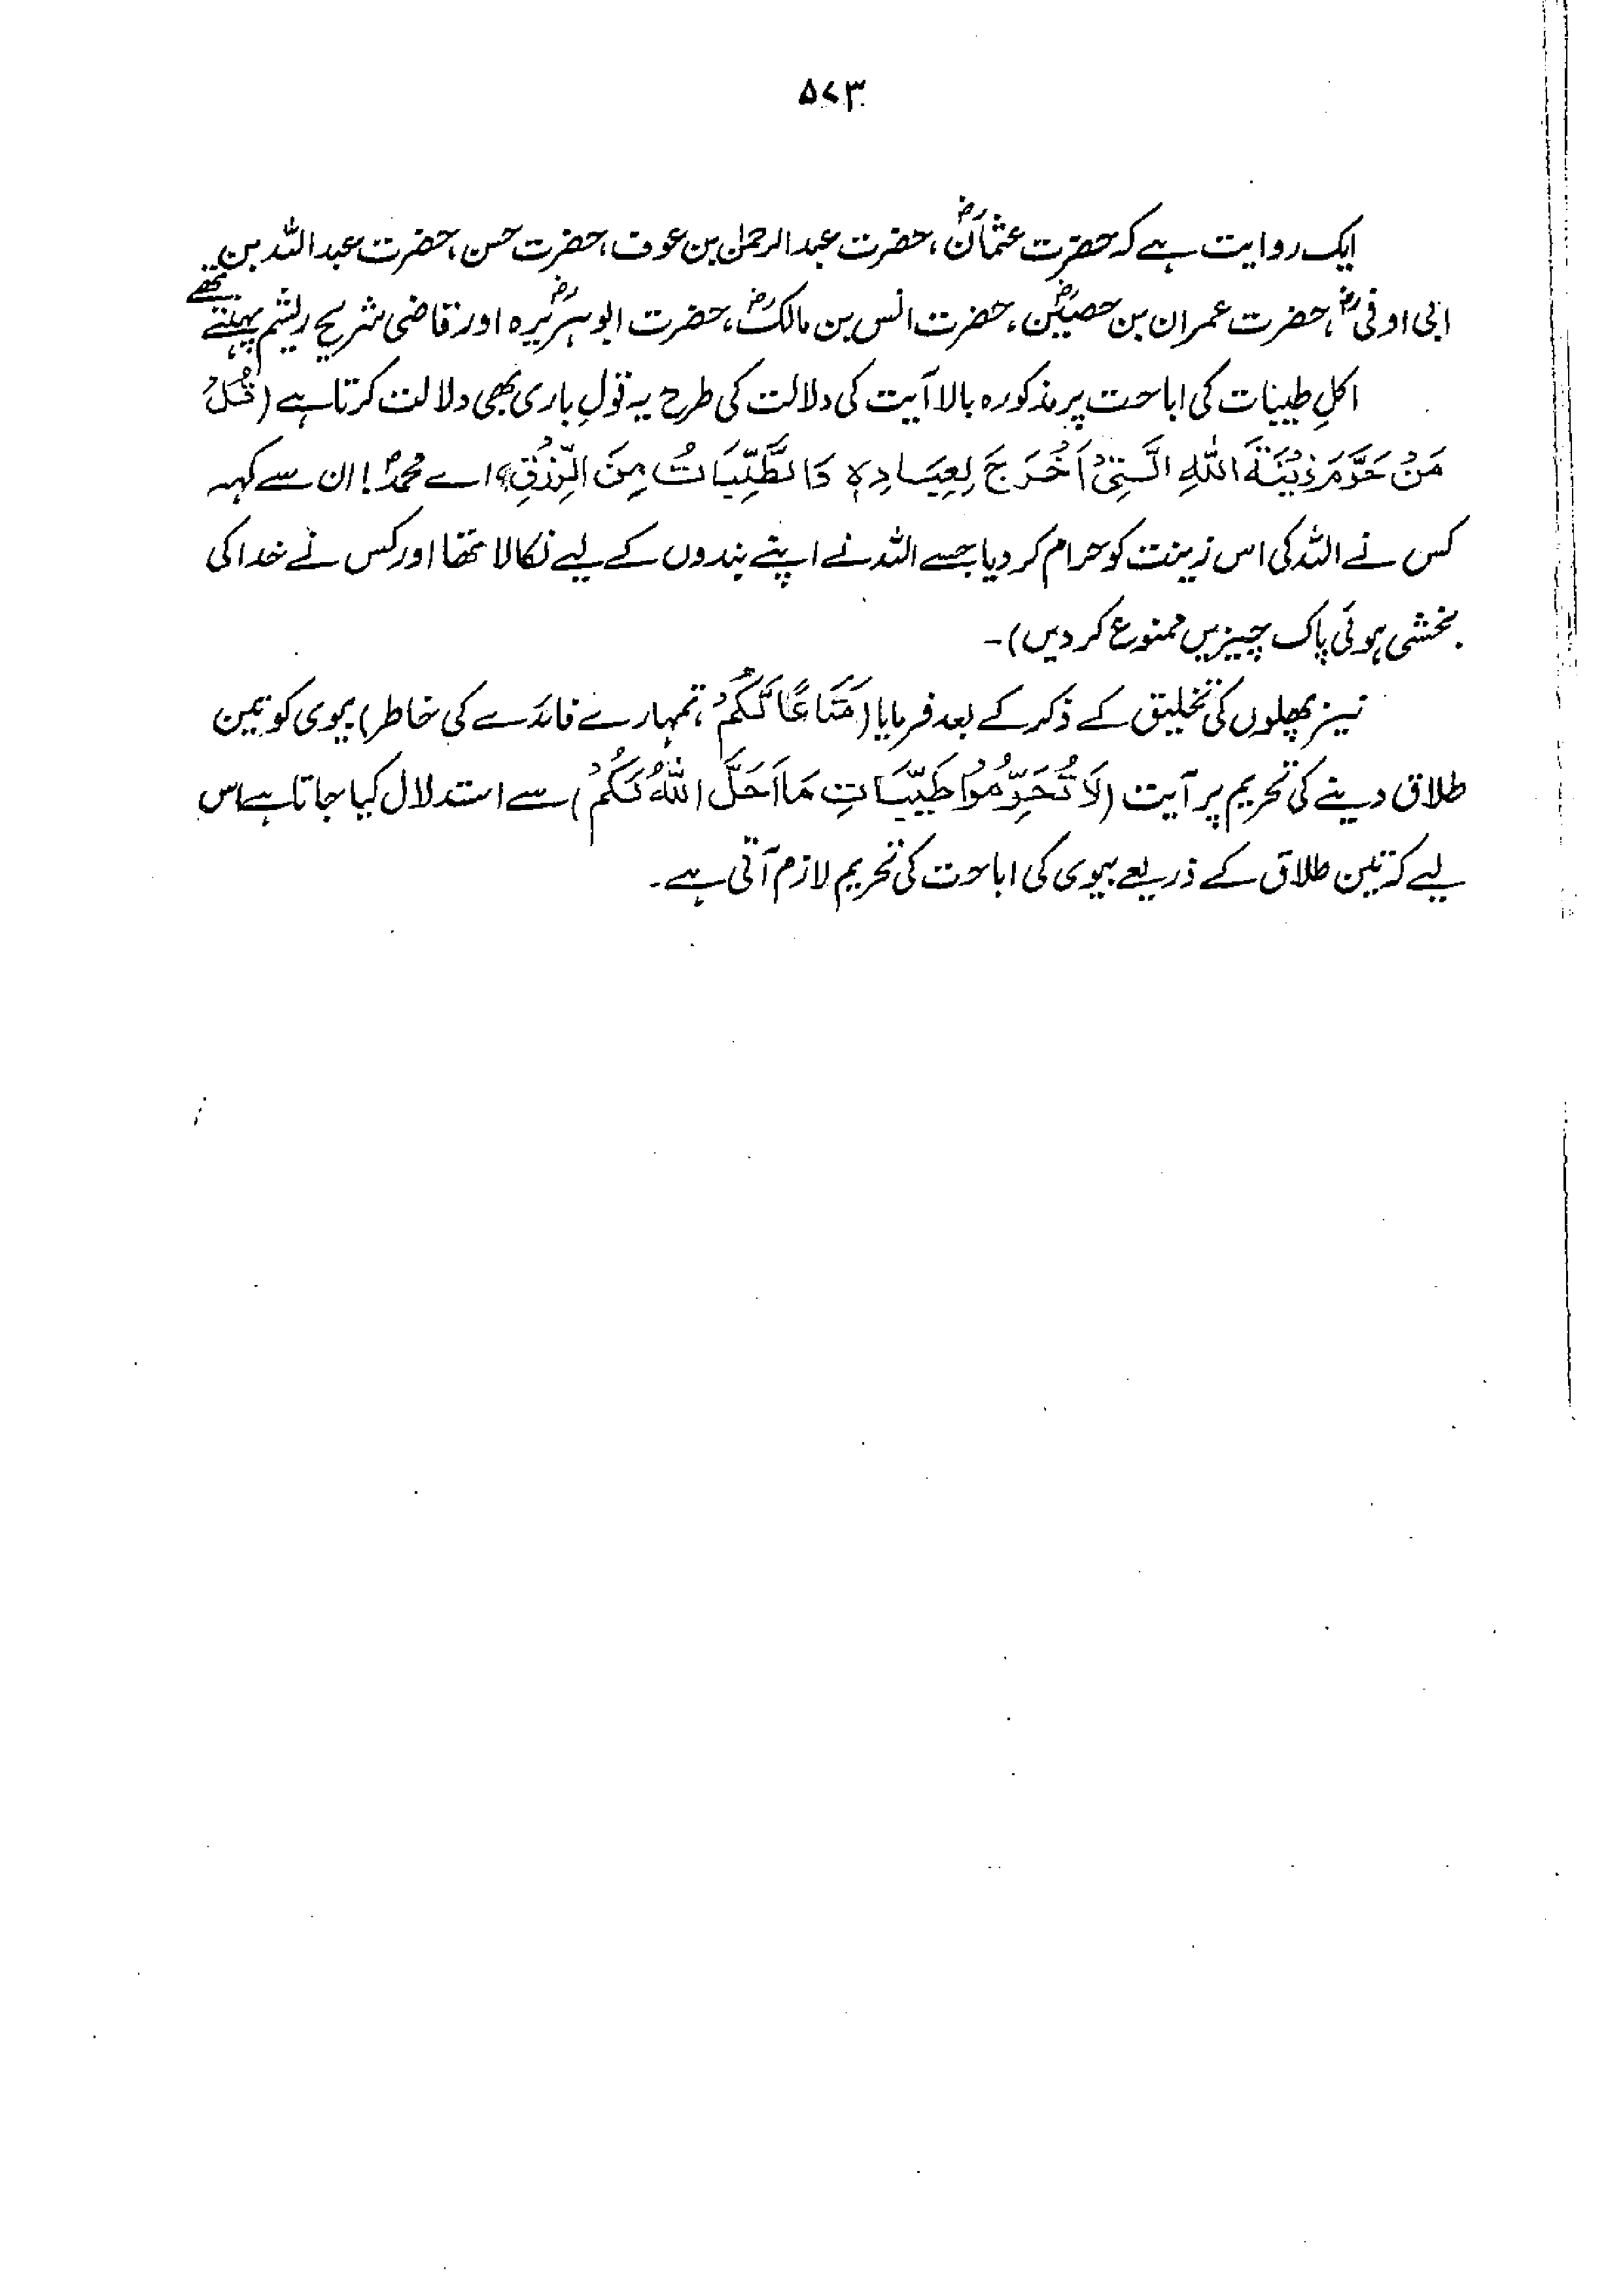 ۵۷۳
ایک روایت ہے کہ حضرت عثمانؓ، حضرت عبدالرحمٰن بن عوف، حضرت حسن، حضرت عبداللہ بن
ابی اوفیؓ، حضرت عمران بن حصینؓ، حضرت انس بن مالکؓ، حضرت ابوہریرہؓ اور قاضی شریح ریشم پہنتے تھے
اکلِ طیبات کی اباحت پر مذکورہ بالا آیت کی دلالت کی طرح یہ قولِ باری بھی دلالت کرتا ہے (قُلْ
مَنْ حَرَّمَ زِيْنَةَ اللّٰهِ الَّتِیْ اَخْرَجَ لِعِبَادِہٖ وَالطَّيِّبَاتُ مِنَ الرِّزْقِ، اے محمدؐ! ان سے کہہ
کس نے اللہ کی اس زینت کو حرام کر دیا جسے اللہ نے اپنے بندوں کے لیے نکالا تھا اور کس نے خدا کی
بخشی ہوئی پاک چیزیں ممنوع کر دیں)۔
نیز پھلوں کی تخلیق کے ذکر کے بعد فرمایا (مَتَاعًا لَّكُمْ، تمہارے فائدے کی خاطر) بیوی کو تین
طلاق دینے کی تحریم پر آیت (لَا تُحَرِّمُوْا طَيِّبَاتِ مَا اَحَلَّ اللّٰهُ لَكُمْ) سے استدلال کیا جاتا ہے اس
لیے کہ تین طلاق کے ذریعے بیوی کی اباحت کی تحریم لازم آتی ہے۔